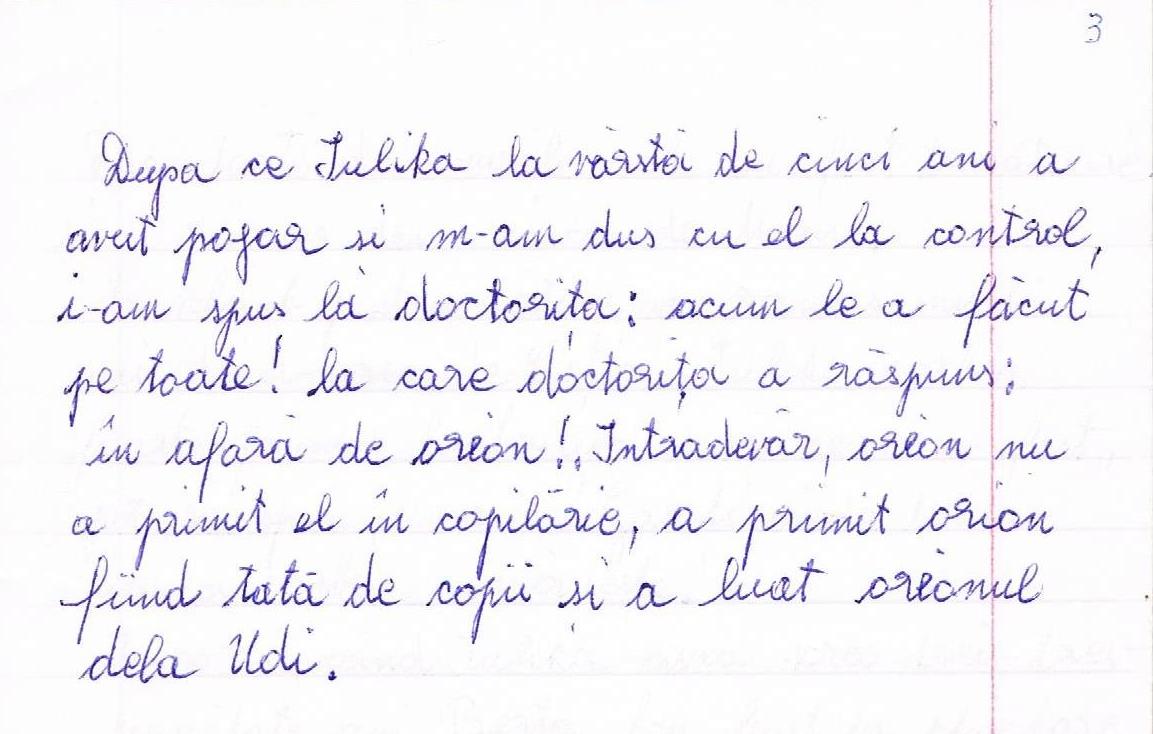 3
Dupa ce Iulika la vârstă de cinci ani a
avut pojar si m-am dus cu el la control,
i-am spus la doctorița: acum le a făcut
pe toate! la care doctorița a răspuns:
în afară de oreon!. Intradevăr, oreon nu
a primit el în copilărie, a primit orion
fiind tată de copii și a luat oreonul
dela Udi.